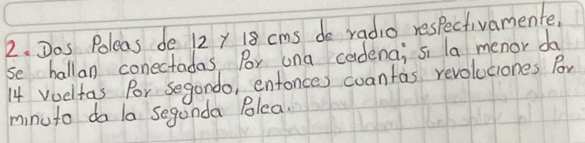 2. Dos Poleas de 12 y 18 cms de radio respectivamente,
se hallan conectadas Por una cadena; si la menor da
14 vueltas Por segundo, entonces cuantas revoluciones Por
minuto da la segunda Polea.